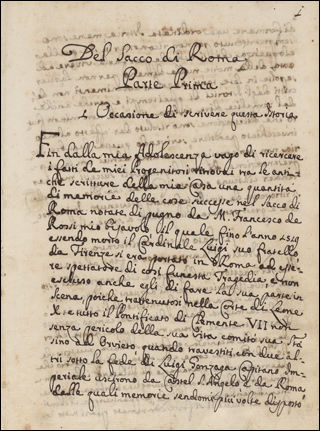 Del Sacco di Roma
Parte Prima
Occasione di scrivere questa Storia
Fin dalla mia Adolescenza vago di ricercare
i fatti de miei Progenitori ritrovai tra le anti-
che scritture della mia Casa una quantità
di memorie delle cose successe nel sacco di
Roma notate di pugno da M. Francesco de
Rossi mio il quale fino l'anno 1519
essendo morto il Cardinale Luigi suo fratello
da Firenze si era portato in Roma ad esse-
re spettatore di così funesta Tragedia e non
escluso anche egli di fare la sua parte in
Scena, poiche trattenutosi nella Corte di Leone
X. e tutto il Pontificato di Clemente VII non
senza pericolo della sua Vita
sino ad Orvieto quando travestiti con due al-
tri sotto la fede di Luigi Gonzaga Capitano Im-
periale uscirono da Castel S. Angelo e da Roma
dalle quali memorie sendomi più volte disposto